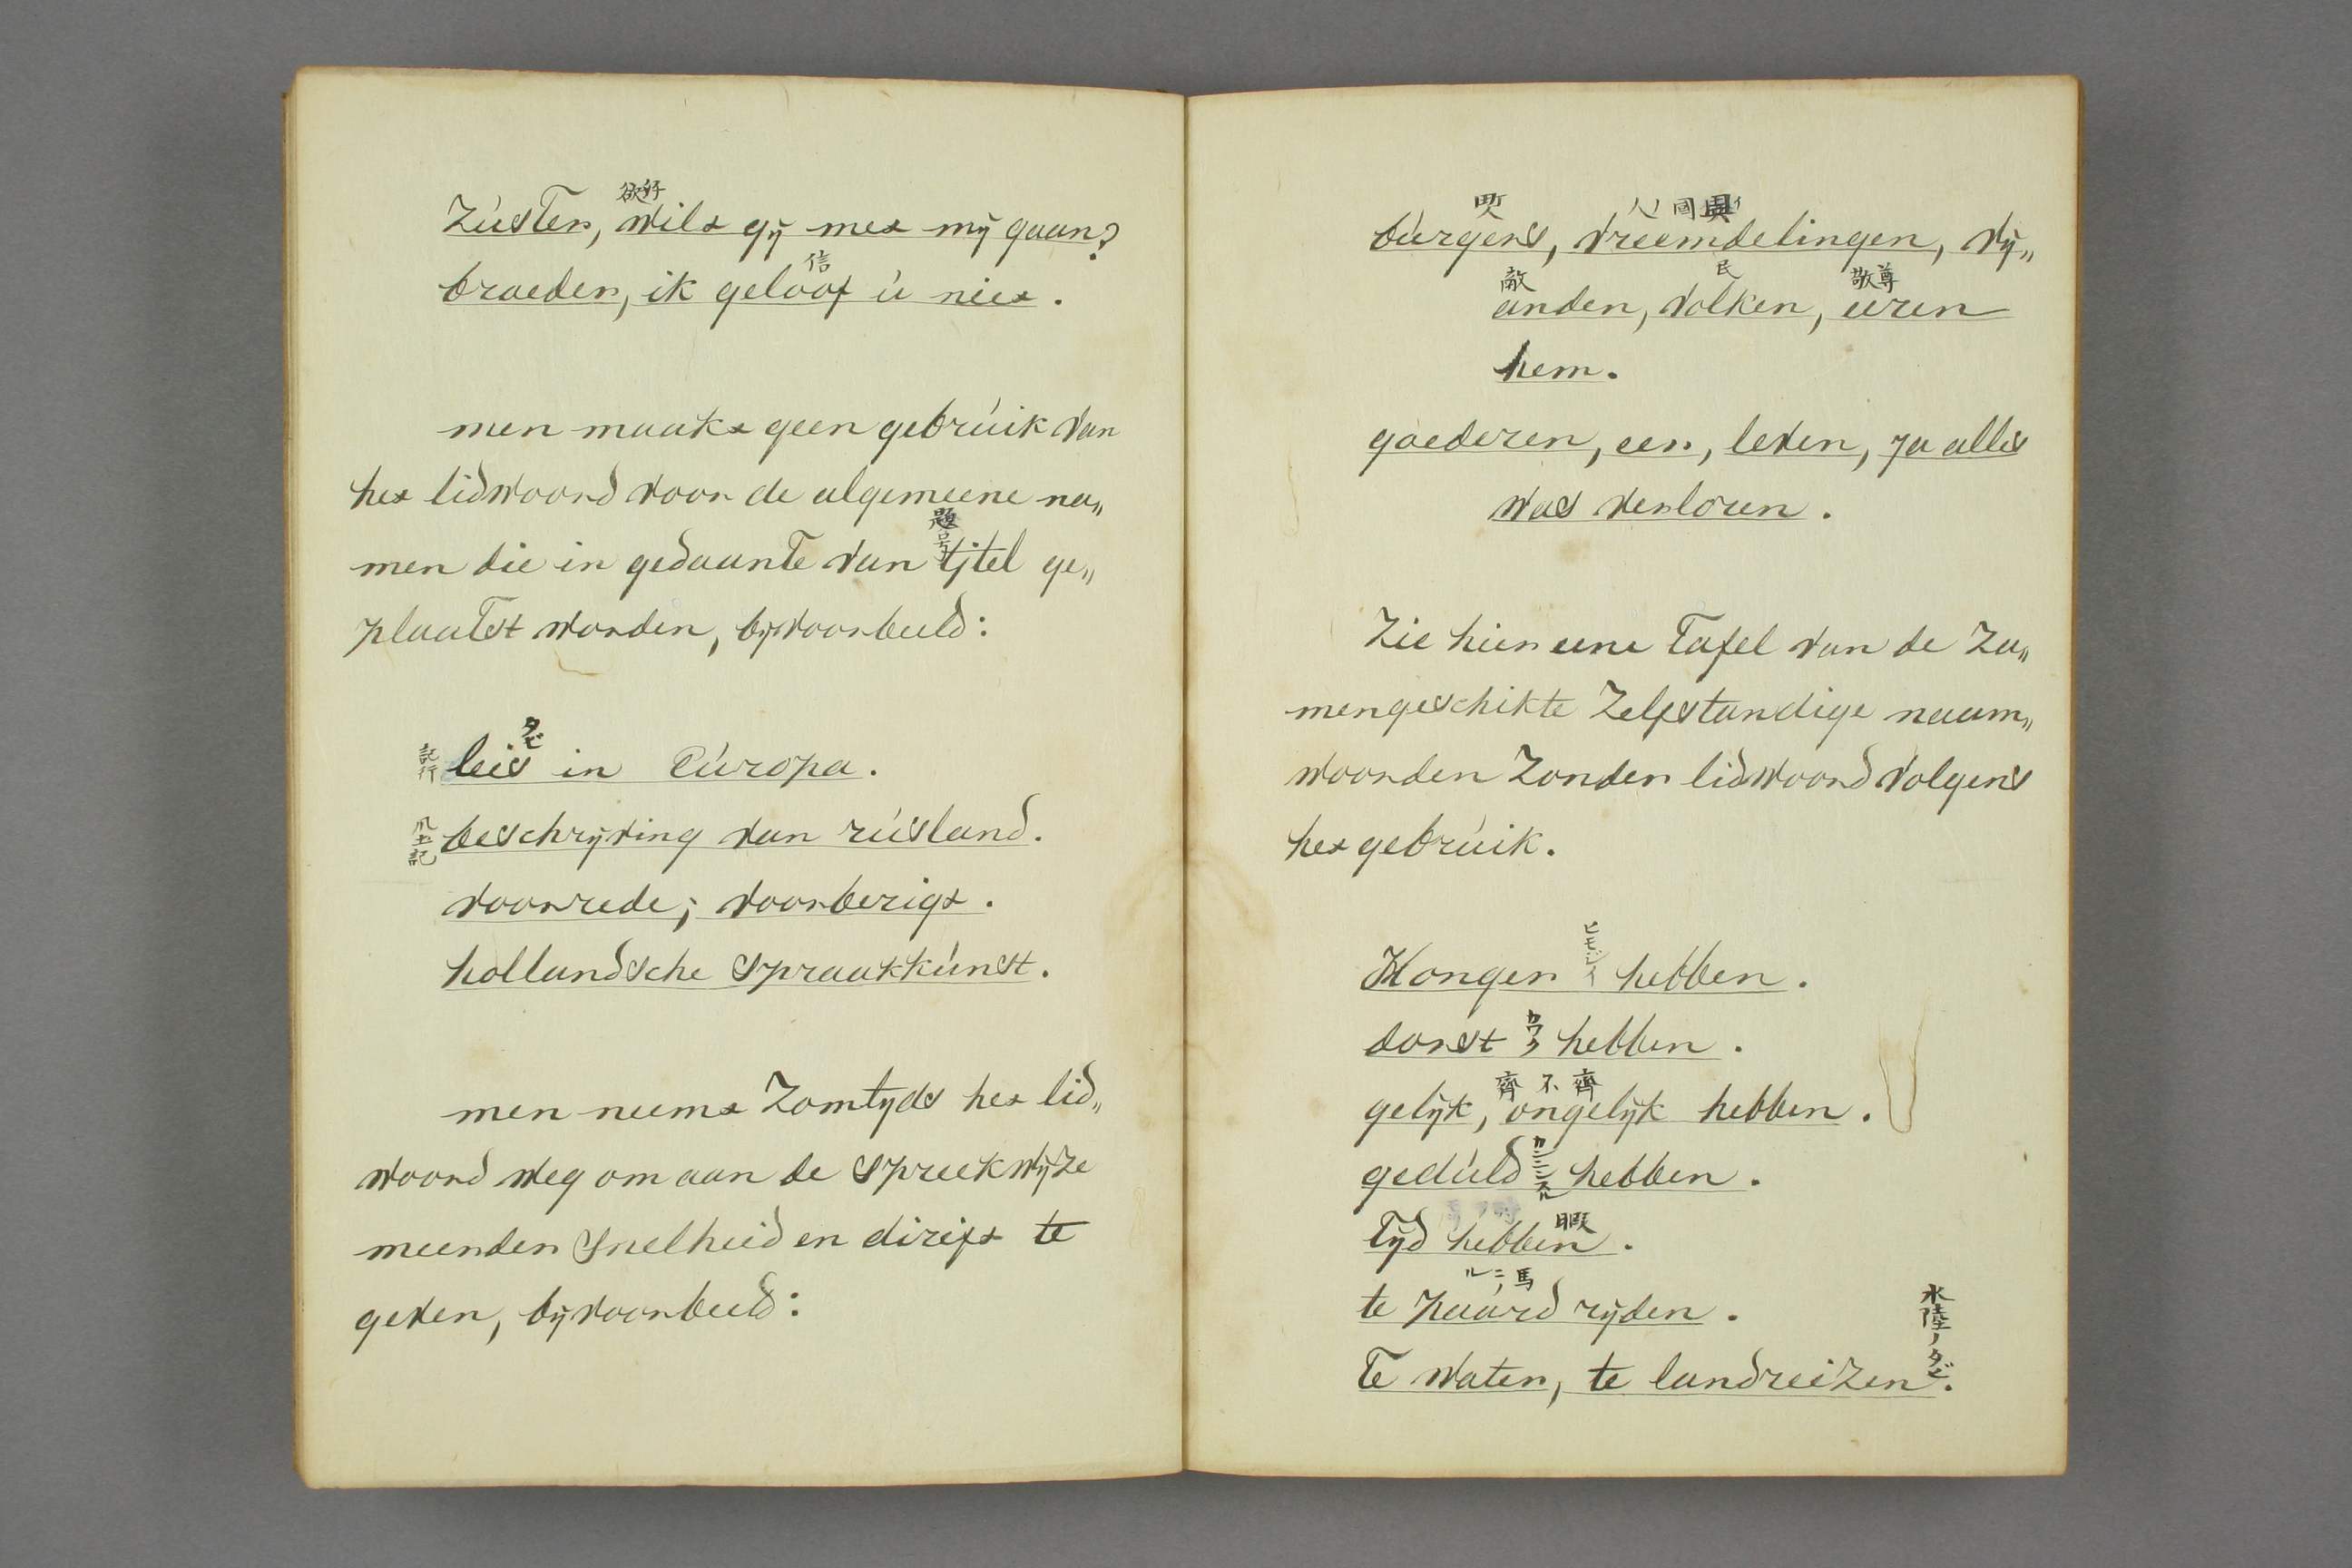 欲好
Zùster, wilt gÿ met mÿ gaan?
信
broeder, ik geloof ù niet.
men maakt geen gebrùik van
het lidwoord voor de algemeene na„
題号
men die in gedaante van tjtel ge„
plaatst worden, bijvoorbeeld:
タビ
記行
leis in Eùropa.
beschrÿving van rùsland.
voorrede; voorberigt.
hollandsche Spraakkùnst.
men neemt Zomtÿds het lid„
woord weg om aan de Spreekwÿze
meender Snelheid en dirift te
geven, bÿvoorbeeld:
bùrgers, vreemdelingen, vÿ„
敵 民 敬尊
anden, volken, eeren
hem.
goederen, eer, leven, ja alles
was verloren.
Zie hier eene Tafel van de Za„
mengeschikte Zelfstandige naam„
woorden Zonder lidwoord volgens
het gebrùik.
ヒモジイ
Honger hebben.
カワク
dorst hebben.
齊 不 齊
gelÿk, ongelÿk hebben.
カンニンスル
gedùld hebben.
暇
Tÿd hebben.
馬
te paard rÿden.
水陸ノタビ
Te water, te landreizen.